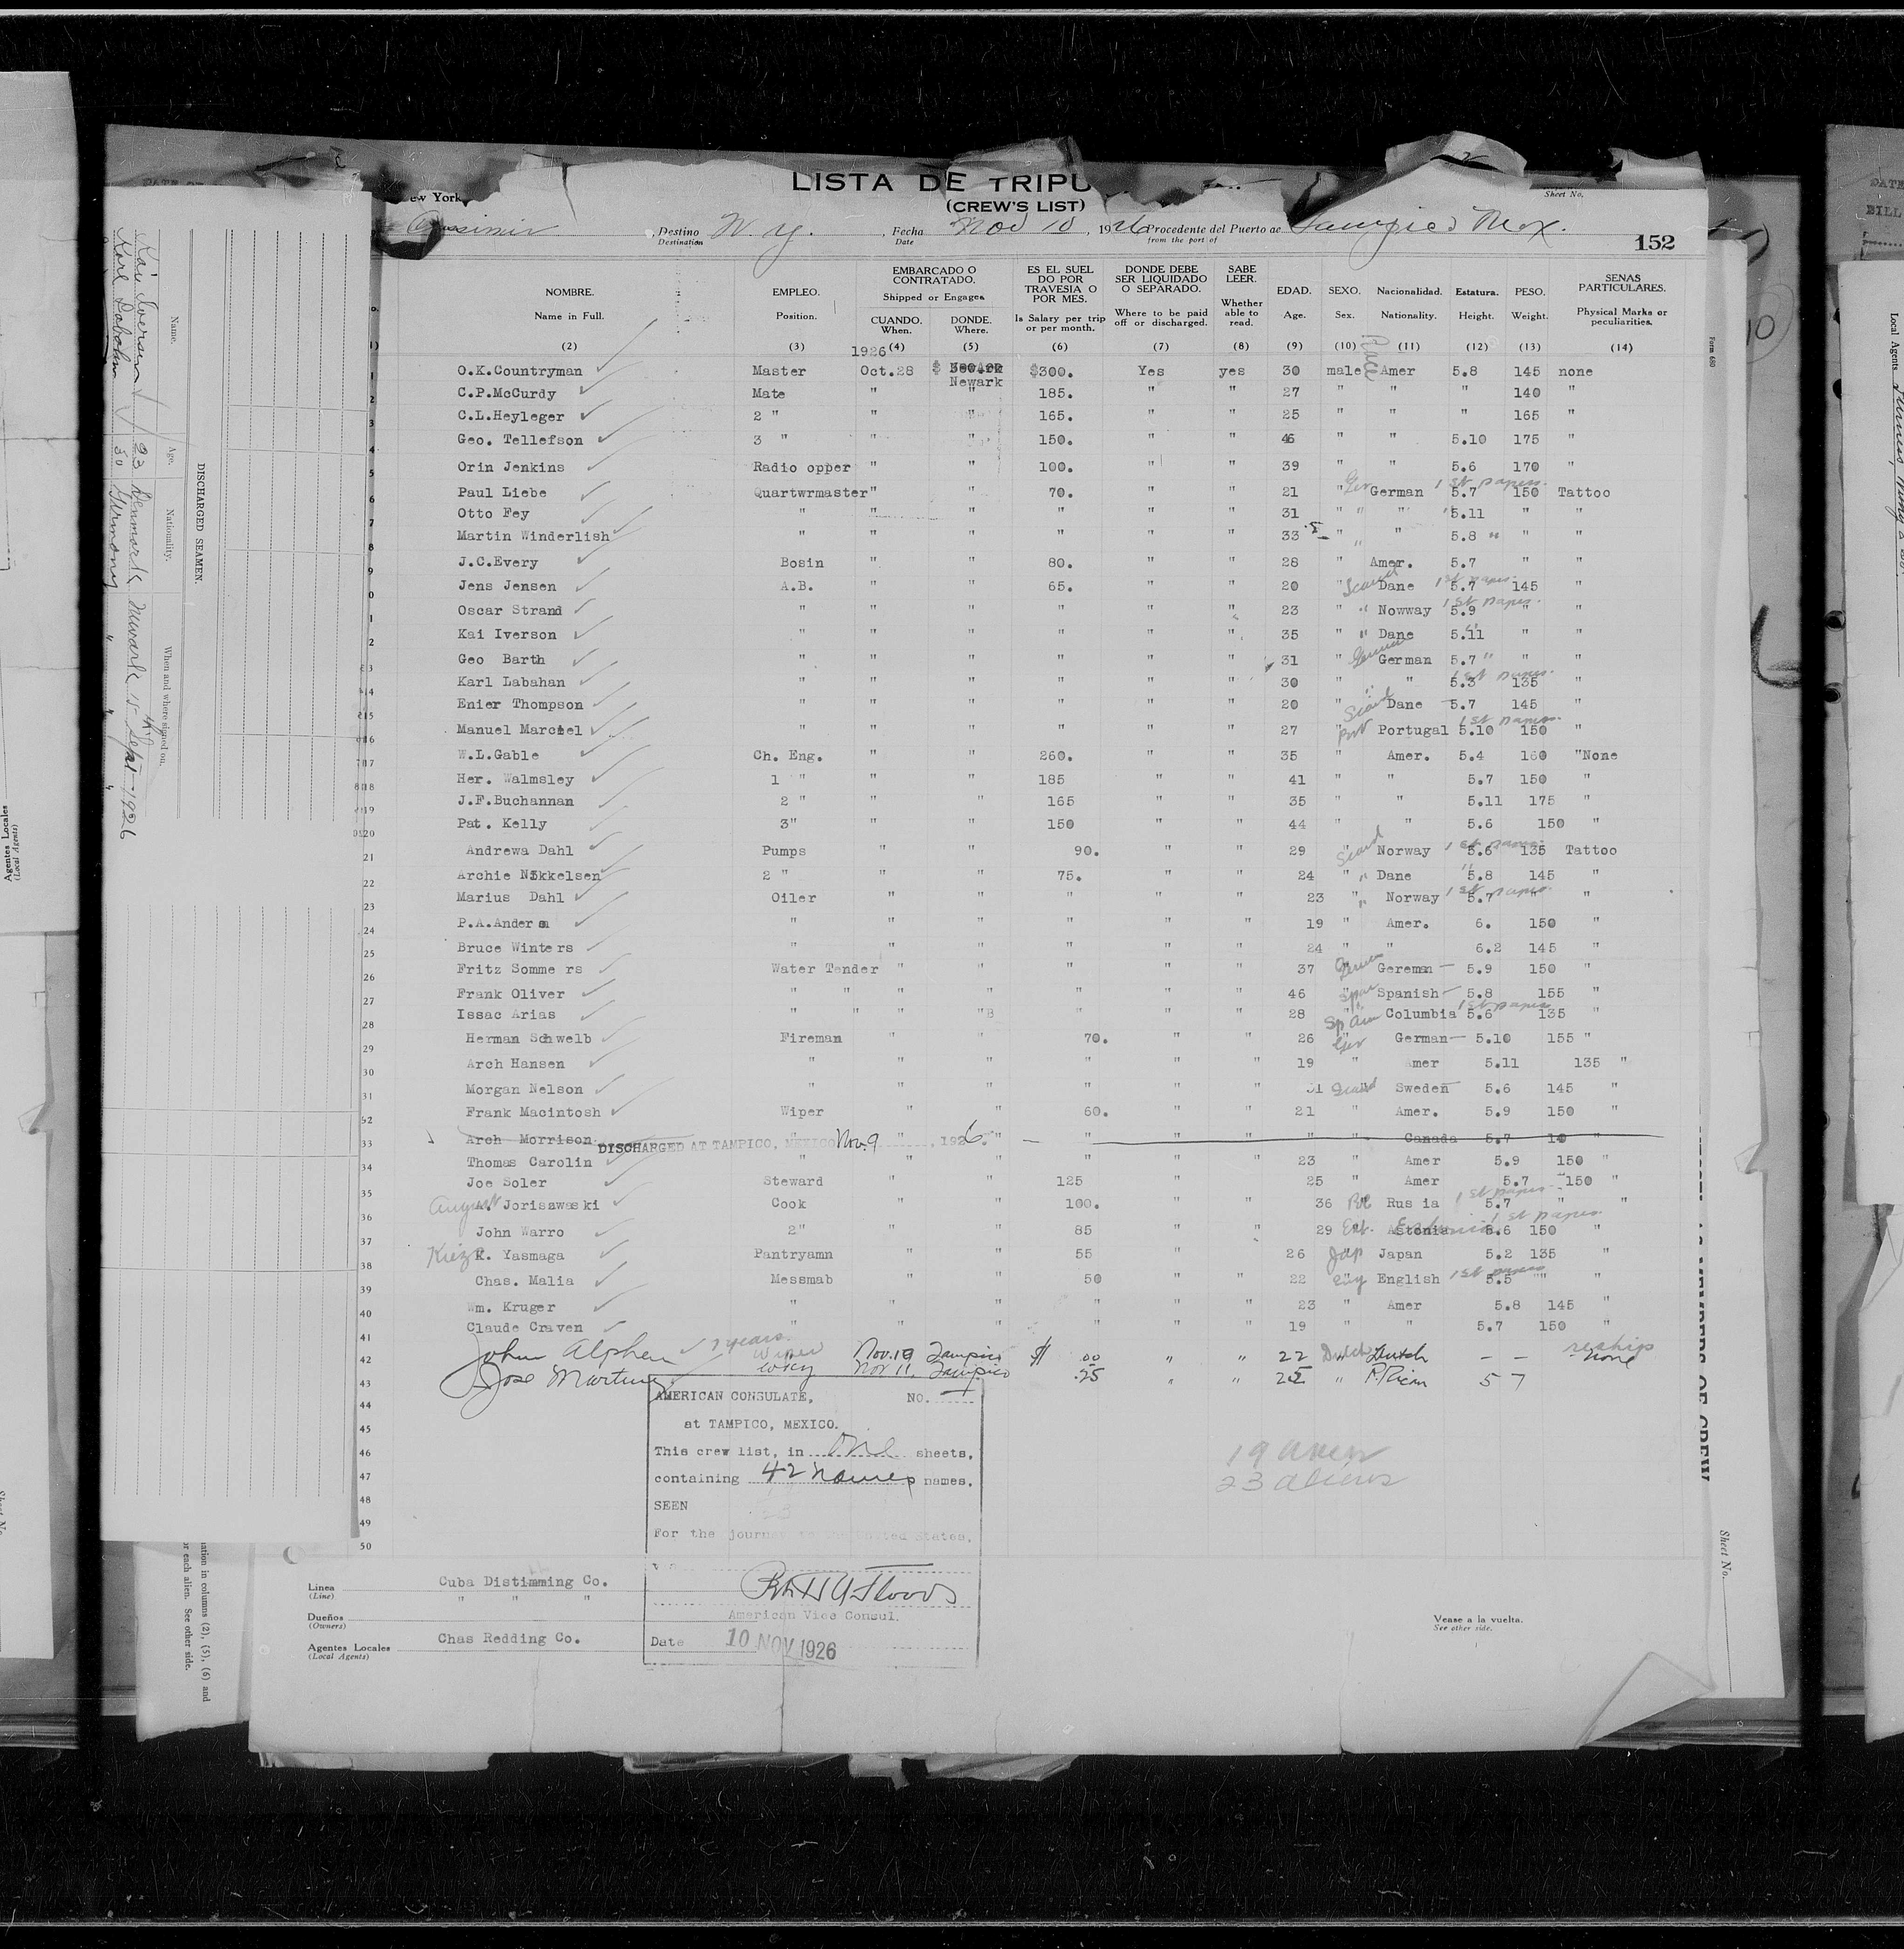 LISTA DE TRIPU
(CREW'S LIST)
Sheet No.
ew York
Destino N. Y. , Fecha Nov 10 , 1926 Procedente del Puerto de Tampico Mex.
Destination Date from the port of
152
NOMBRE. EMPLEO. EMBARCADO O CONTRATADO. ES EL SUEL DO POR TRAVESIA O POR MES. DONDE DEBE SER LIQUIDADO O SEPARADO. SABE LEER. EDAD. SEXO. Nacionalidad. Estatura. PESO. SENAS PARTICULARES.
Name in Full. Position. Shipped or Engages CUANDO. When. DONDE. Where. Is Salary per trip or per month. Where to be paid off or discharged. Whether able to read. Age. Sex. Nationality. Height. Weight. Physical Marks or peculiarities.
(2) (3) 1926 (4) (5) (6) (7) (8) (9) (10) Race (11) (12) (13) (14)
1 O.K.Countryman Master Oct.28 Newark $300. Yes yes 30 male Amer 5.8 145 none
2 C.P.McCurdy Mate " " 185. " " 27 " " " 140 "
3 C.L.Heyleger 2 " " " 165. " " 25 " " " 165 "
4 Geo. Tellefson 3 " " " 150. " " 46 " " 5.10 175 "
5 Orin Jenkins Radio opper " " 100. " " 39 " " 5.6 170 "
6 Paul Liebe Quartwrmaster " " 70. " " 21 " Ger German 1st papers. 5.7 150 Tattoo
7 Otto Fey " " " " " " 31 " " " " 5.11 " "
8 Martin Winderlish " " " " " " 33 " " " 5.8 " " "
9 J.C.Every Bosin " " 80. " " 28 " Amer. 5.7 " "
0 Jens Jensen A.B. " " 65. " " 20 " Scand Dane 1st papers. 5.7 145 "
1 Oscar Strand " " " " " " 23 " " Nowway 1st papers. 5.9 " "
2 Kai Iverson " " " " " " 35 " " Dane 5.11 " "
3 Geo Barth " " " " " " 31 " German German 5.7 " " "
14 Karl Labahan " " " " " " 30 " " 1st papers. 5.3 135 "
15 Enier Thompson " " " " " " 20 " Scand Dane 5.7 145 "
16 Manuel Marciel " " " " " " 27 " Port Portugal 1st papers. 5.10 150 "
17 W.L.Gable Ch. Eng. " " 260. " " 35 " Amer. 5.4 160 "None
18 Her. Walmsley 1 " " " 185 " " 41 " " 5.7 150 "
19 J.F.Buchannan 2 " " " 165 " " 35 " " 5.11 175 "
20 Pat. Kelly 3" " " 150 " " 44 " " 5.6 150 "
21 Andrewa Dahl Pumps " " 90. " " 29 Scand Norway 1st papers 5.6 135 Tattoo
22 Archie Nikkelsen 2 " " " 75. " " 24 " " Dane " 5.8 145 "
23 Marius Dahl Oiler " " " " " 23 " " Norway 1st papers. 5.7 " "
24 P.A.Anders " " " " " " 19 " Amer. 6. 150 "
25 Bruce Winters " " " " " " 24 " " 6.2 145 "
26 Fritz Sommers Water Tender " " " " " 37 " German Gereman 5.9 150 "
27 Frank Oliver " " " " " " " 46 " Span Spanish 5.8 155 "
28 Issac Arias " " " " " " " 28 " Sp Am Columbia 1st papers 5.6 135 "
29 Herman Schwelb Fireman " " 70. " " 26 " Ger German 5.10 155 "
30 Arch Hansen " " " " " " 19 " Amer 5.11 135 "
31 Morgan Nelson " " " " " " 31 Scand Sweden 5.6 145 "
32 Frank Macintosh Wiper " " 60. " " 21 " Amer. 5.9 150 "
33 Arch Morrison DISCHARGED AT TAMPICO, MEXICO Nov. 9 , 1926. " " " " " Canada 5.7 "
34 Thomas Carolin " " " " " " 23 " Amer 5.9 150 "
35 Joe Soler Steward " " 125 " 25 " Amer 5.7 150 "
36 August Joriszweski Cook " " 100. " " 36 Pol Rus ia 1st papers 5.7 " "
37 John Warro 2" " " 85 " " 29 Est. Estonia 1st papers. 5.6 150 "
38 R. Yasmaga Pantryamn " " 55 " 26 Jap Japan 5.2 135 "
39 Chas. Malia Messmab " " 50 " " 22 Eng English 1st papers 5.5 "" "
40 Wm. Kruger " " " " " " 23 " Amer 5.8 145 "
41 Claude Craven " " " " " " 19 " " 5.7 150 "
42 John Alphen 7 years. Wiper Nov. 10 Tampico $ .00 " " 22 Dutch Dutch — — reships none
43 Jose Martinez wky Nov 11, Tampico .25 " " 22 " P. Rican 5 7
44
45
46
47
48
49
50
AMERICAN CONSULATE, NO.
at TAMPICO, MEXICO.
This crew list, in One sheets,
containing 42 names names.
SEEN
For the journey to the United States.
American Vice Consul.
Date 10 NOV 1926
19 Amer
23 aliens
Linea Cuba Distimming Co.
(Line) " " "
Dueños
(Owners)
Agentes Locales Chas Redding Co.
(Local Agents)
Vease a la vuelta.
See other side.
Sheet No.
Form 680
MEMBERS OF CREW
DISCHARGED SEAMEN.
Name. Age. Nationality. When and where signed on.
Kai Iversen 23 Denmark Newark 15th Sept 1926
Karl Labahn 30 Germany " " "
ation in columns (2), (5), (6) and
or each alien. See other side.
Agentes Locales
(Local Agents)
Local Agents
DATE
BILL
10